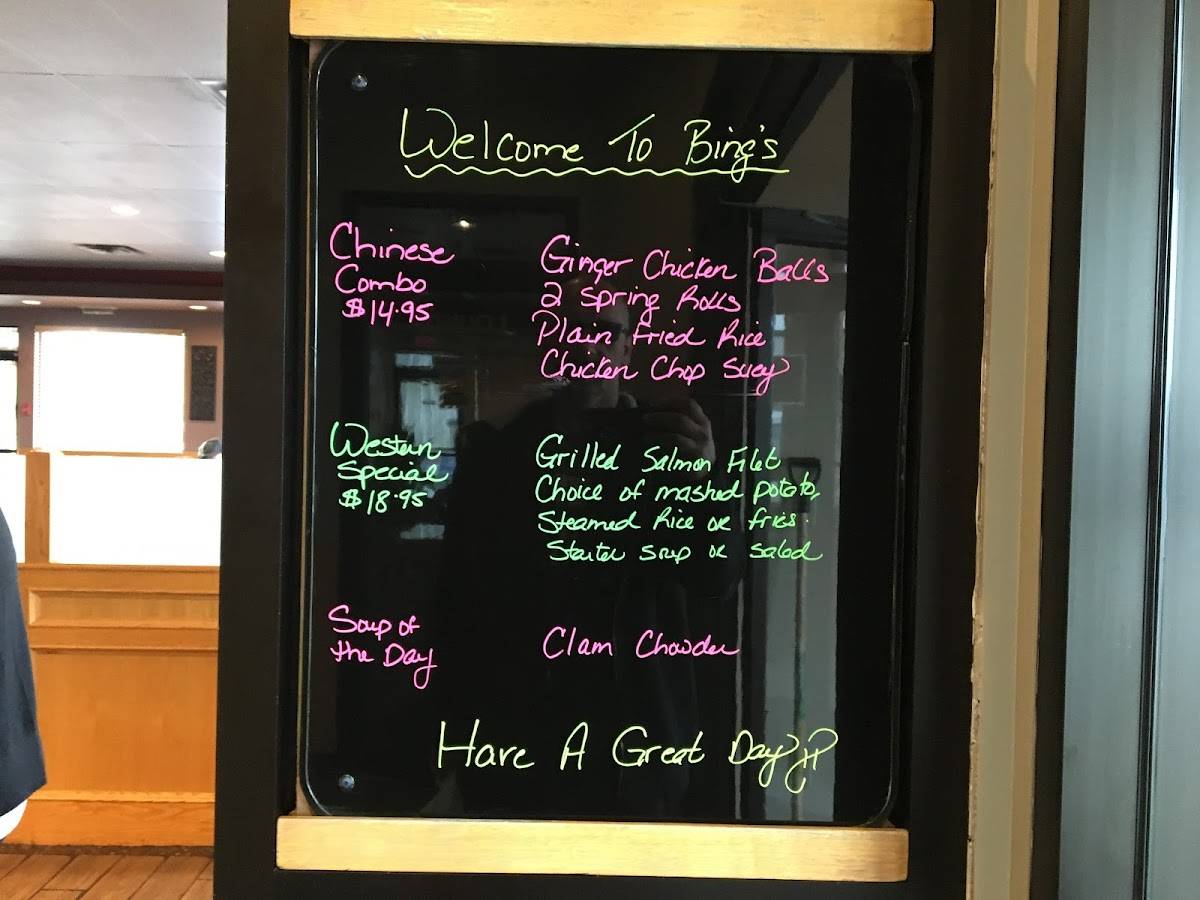 Welcome To Bing's
Chinese
Combo
$14.95
Ginger Chicken Balls
2 Spring Rolls
Plain Fried Rice
Chicken Chop Suey
Western
Special
$18.95
Grilled Salmon Filet
Choice of mashed potato,
Steamed Rice or fries.
Starter soup or salad
Soup of
the Day
Clam Chowder
Have A Great Day